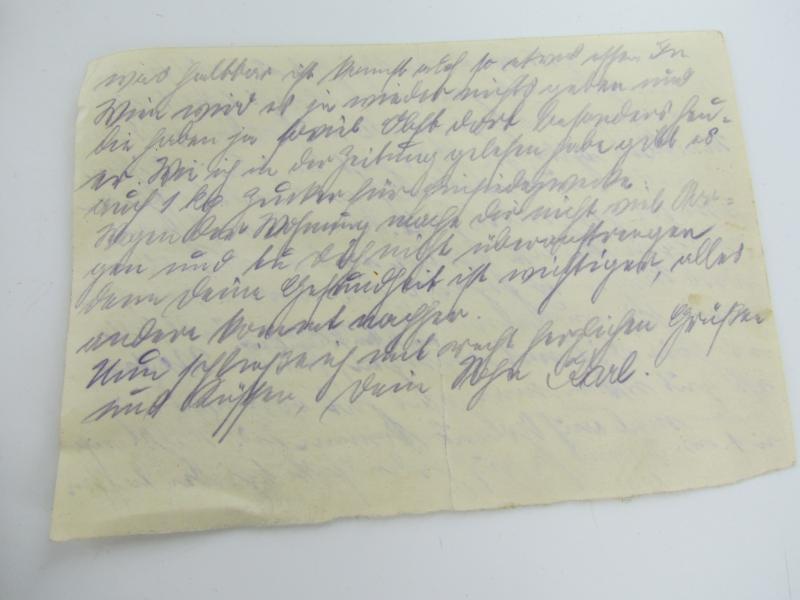 was haltbar ist kannst auch so etwas essen. In
Wien wird es ja wieder nichts geben und
die haben ja soviel Obst dort besonders heu-
er. Wie ich in der Zeitung gelesen habe gibt es
auch 1 kg Zucker für Einsiedezwecke.
Wegen der Wohnung mache dir nicht viel Sor-
gen und tu dich nicht überanstrengen
denn deine Gesundheit ist wichtiger, alles
andere kommt nachher.
Nun schließe ich mit recht herzlichen Grüßen
und Küssen, dein Sohn Karl.